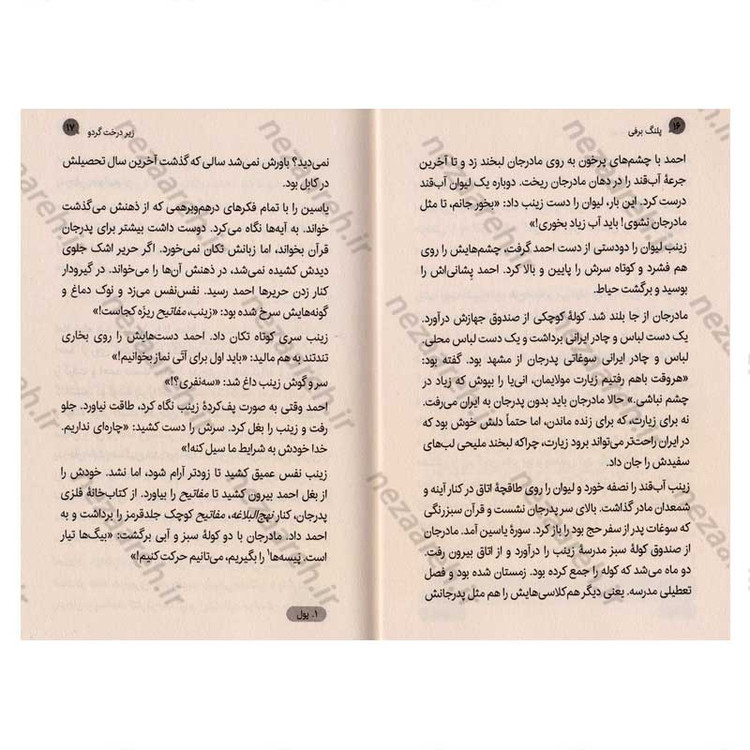 ۱۶ پلنگ برفی
احمد با چشم‌های پرخون به روی مادرجان لبخند زد و تا آخرین
جرعهٔ آب‌قند را در دهان مادرجان ریخت. دوباره یک لیوان آب‌قند
درست کرد. این بار، لیوان را دست زینب داد: «بخور جانم، تا مثل
مادرجان نشوی! باید آب زیاد بخوری!»
زینب لیوان را دودستی از دست احمد گرفت، چشم‌هایش را روی
هم فشرد و کوتاه سرش را پایین و بالا کرد. احمد پِشانی‌اش را
بوسید و برگشت حیاط.
مادرجان از جا بلند شد. کولهٔ کوچکی از صندوق جهازش درآورد.
یک دست لباس و چادر ایرانی برداشت و یک دست لباس محلی.
لباس و چادر ایرانی سوغاتی پدرجان از مشهد بود. گفته بود:
«هروقت باهم رفتیم زیارت مولایمان، انی‌یا را بپوش که زیاد در
چشم نباشی.» حالا مادرجان باید بدون پدرجان به ایران می‌رفت.
نه برای زیارت، که برای زنده ماندن، اما حتماً دلش خوش بود که
در ایران راحت‌تر می‌تواند برود زیارت، چراکه لبخند ملیحی لب‌های
سفیدش را جان داد.
زینب آب‌قند را نصفه خورد و لیوان را روی طاقچهٔ اتاق در کنار آینه و
شمعدان مادر گذاشت. بالای سر پدرجان نشست و قرآن سبزرنگی
که سوغات پدر از سفر حج بود را باز کرد. سورهٔ یاسین آمد. مادرجان
از صندوق کولهٔ سبز مدرسهٔ زینب را درآورد و از اتاق بیرون رفت.
دو ماه می‌شد که کوله را جمع کرده بود. زمستان شده بود و فصل
تعطیلی مدرسه. یعنی دیگر هم‌کلاسی‌هایش را هم مثل پدرجانش
زیر درخت گردو ۱۷
نمی‌دید؟ باورش نمی‌شد سالی که گذشت آخرین سال تحصیلش
در کابل بود.
یاسین را با تمام فکرهای درهم‌وبرهمی که از ذهنش می‌گذشت
خواند. به آیه‌ها نگاه می‌کرد. دوست داشت بیشتر برای پدرجان
قرآن بخواند، اما زبانش تکان نمی‌خورد. اگر حریر اشک جلوی
دیدش کشیده نمی‌شد، در ذهنش آن‌ها را می‌خواند. در گیرودار
کنار زدن حریرها احمد رسید. نفس‌نفس می‌زد و نوک دماغ و
گونه‌هایش سرخ شده بود: «زینب، مفاتیح ریزه کجاست!»
زینب سری کوتاه تکان داد. احمد دست‌هایش را روی بخاری
تندتند به هم مالید: «باید اول برای آتی نماز بخوانیم!»
سر و گوش زینب داغ شد: «سه‌نفری؟!»
احمد وقتی به صورت پف‌کردهٔ زینب نگاه کرد، طاقت نیاورد. جلو
رفت و زینب را بغل کرد. سرش را دست کشید: «چاره‌ای نداریم.
خدا خودش به شرایط ما سیل کنه!»
زینب نفس عمیق کشید تا زودتر آرام شود، اما نشد. خودش را
از بغل احمد بیرون کشید تا مفاتیح را بیاورد. از کتاب‌خانهٔ فلزی
پدرجان، کنار نهج‌البلاغه، مفاتیح کوچک جلدقرمز را برداشت و به
احمد داد. مادرجان با دو کولهٔ سبز و آبی برگشت: «بیگ‌ها تیار
است. پَیسه‌ها۱ را بگیریم، می‌تانیم حرکت کنیم!»
۱. پول
nezaareh.ir